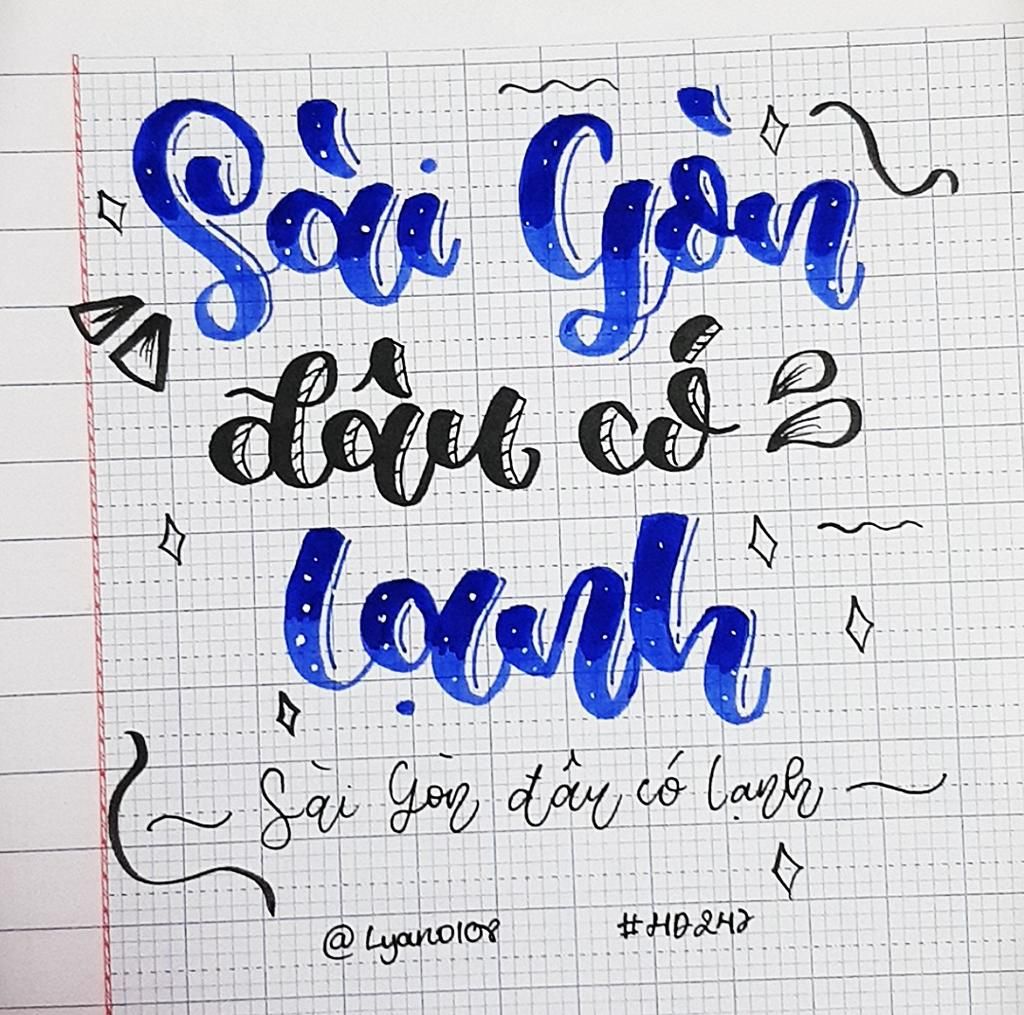 Sài Gòn
đâu có
lạnh
Sài Gòn đâu có lạnh
@Lyano108 #HD247